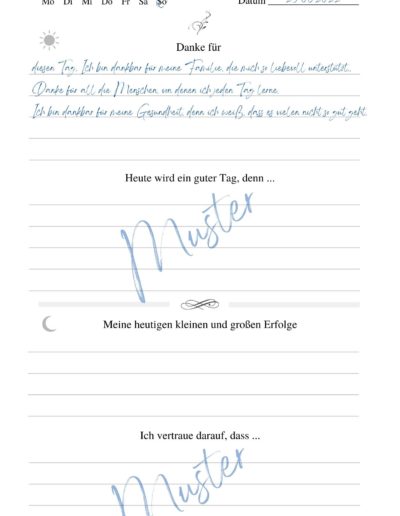 Mo Di Mi Do Fr Sa So Datum
Danke für
diesen Tag. Ich bin dankbar für meine Familie, die mich so liebevoll unterstützt.
Danke für all die Menschen, von denen ich jeden Tag lerne.
Ich bin dankbar für meine Gesundheit, denn ich weiß, dass es vielen nicht so gut geht.
Heute wird ein guter Tag, denn ...
Muster
Meine heutigen kleinen und großen Erfolge
Ich vertraue darauf, dass ...
Muster